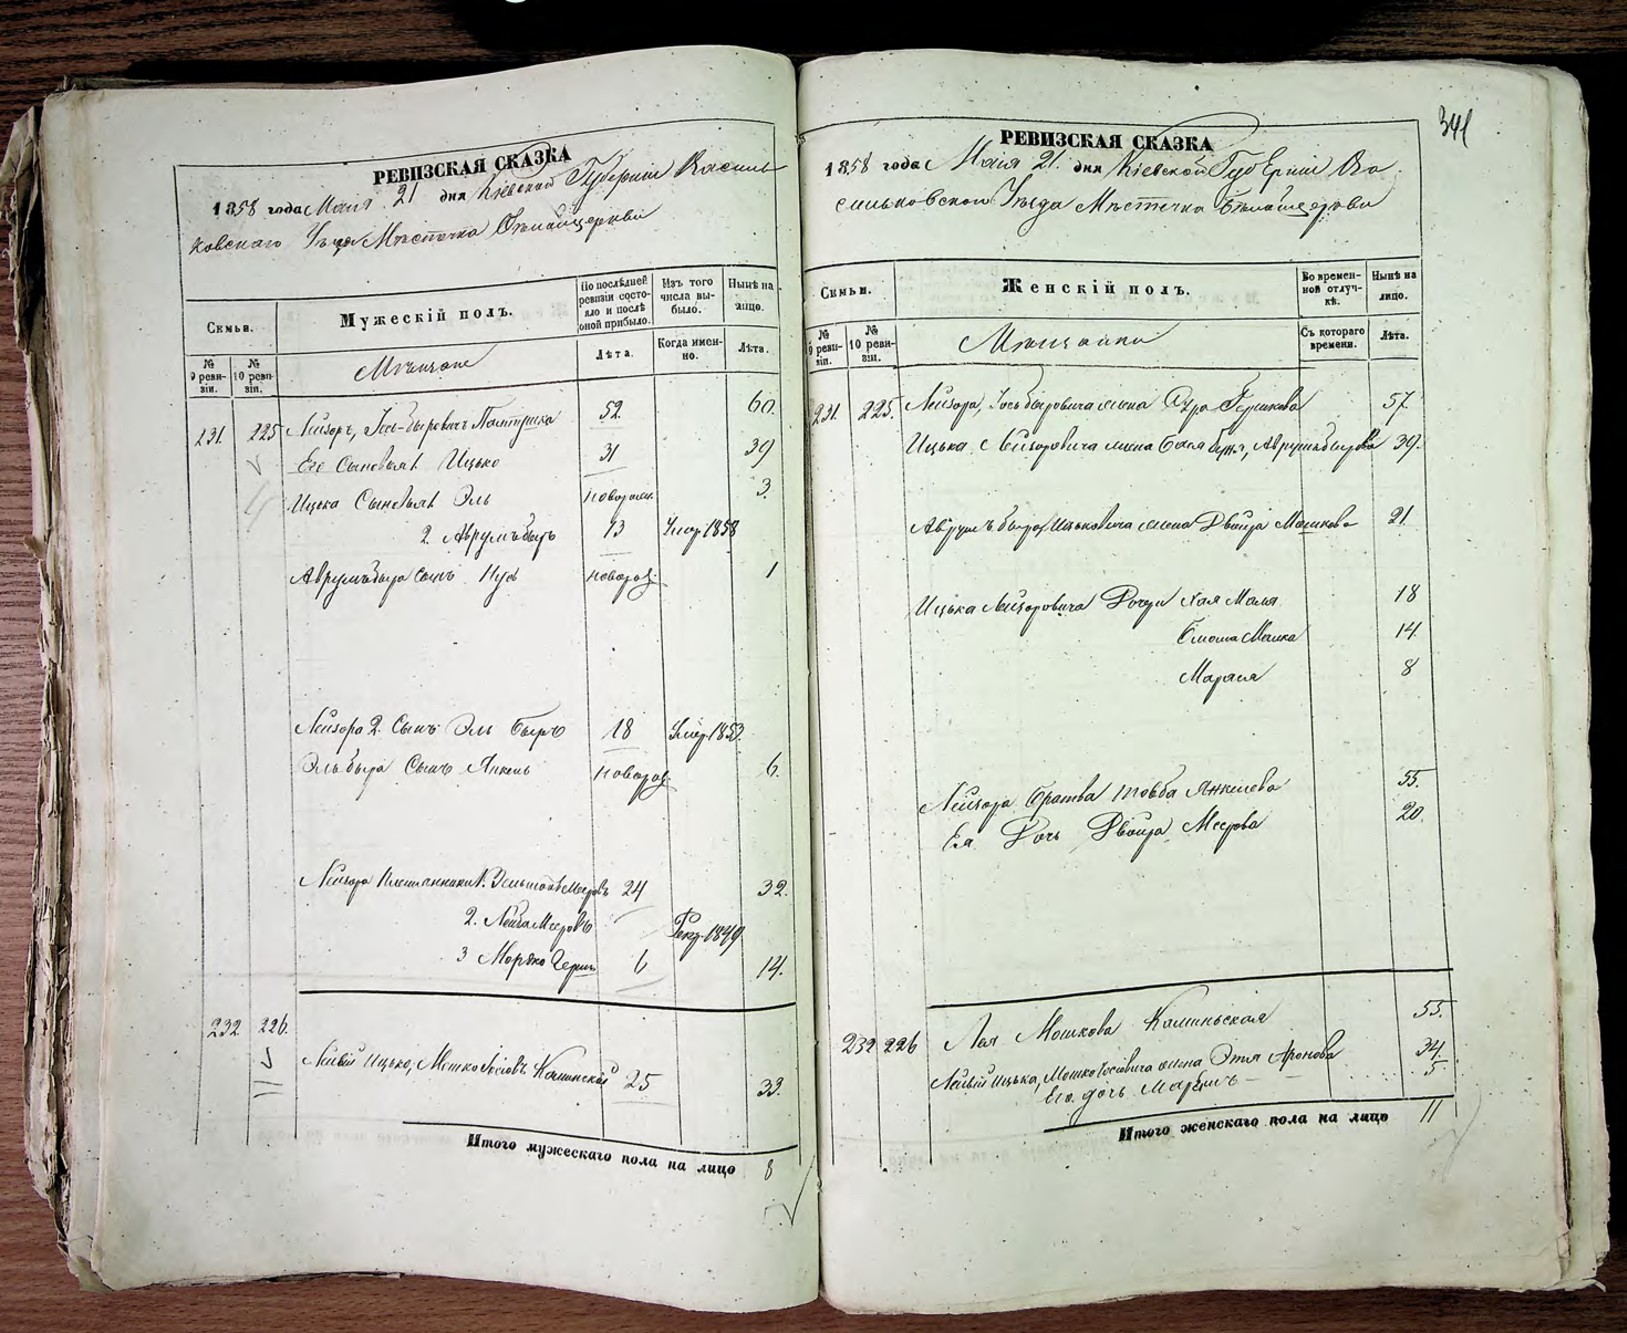 РЕВИЗСКАЯ СКАЗКА
1858 года Мая 21 дня Кіевской Губерніи Василь
ковскаго Уѣзда Мѣстечка Бѣлойцеркви
Семьи.
Мужескій полъ.
По послѣдней ревизіи состояло и послѣ оной прибыло.
Изъ того числа выбыло.
Нынѣ на лицо.
№ 9 ревизіи.
№ 10 ревизіи.
Мѣщане
Лѣта.
Когда именно.
Лѣта.
231. 225 Лейзоръ, Іось-Беровичъ 52. 60.
Его Сыновья 1. Ицько 31 39
Ицька Сыновья 1. Эль новорож. 3.
2. Аврумъ Беръ 13 Умер. 1858
Аврумъ Бера Сынъ Нусь новорож. 1
Лейзора 2. Сынъ Эль Беръ 18 Умер. 1853.
Эль Бера Сынъ Янкель новорож. 6.
Лейзора Племянники 1. Мееровъ 24 32.
2. Лейба Мееровъ Рекр. 1849
3 Мордко 6 14.
232 226. Лейви Ицько, Мошко Іосіовъ Каминскій 25 33.
Итого мужескаго пола на лицо 8
341
РЕВИЗСКАЯ СКАЗКА
1858 года Мая 21. дня Кіевской Губерніи Ва
сильковскаго Уѣзда Мѣстечка Бѣлойцеркви
Семьи.
Женскій полъ.
Во временной отлучкѣ.
Нынѣ на лицо.
№ 9 ревизіи.
№ 10 ревизіи.
Мѣщанки
Съ котораго времени.
Лѣта.
231. 225. Лейзора, Іось Беровича жена Сура Гершкова 57.
Ицька Лейзоровича жена Бася Аврумъ Берова 39.
Аврумъ Бера, Ицьковича жена Двойра Мошкова 21.
Ицька Лейзоровича Дочери Хая Маля 18
Мошка 14.
Марася 8
Лейзора Братва Товба Янкелева 55.
Ея Дочь Двойра Меерова 20.
232 226 Лея Мошкова Каминьская 55.
Лейви Ицька, Мошко Іосіовича жена Этля Аронова 34.
Его дочь 5
Итого женскаго пола на лицо 11